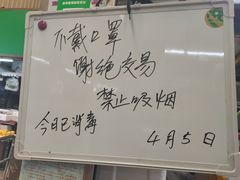 不戴口罩
谢绝交易
禁止吸烟
今日已消毒
4月5日